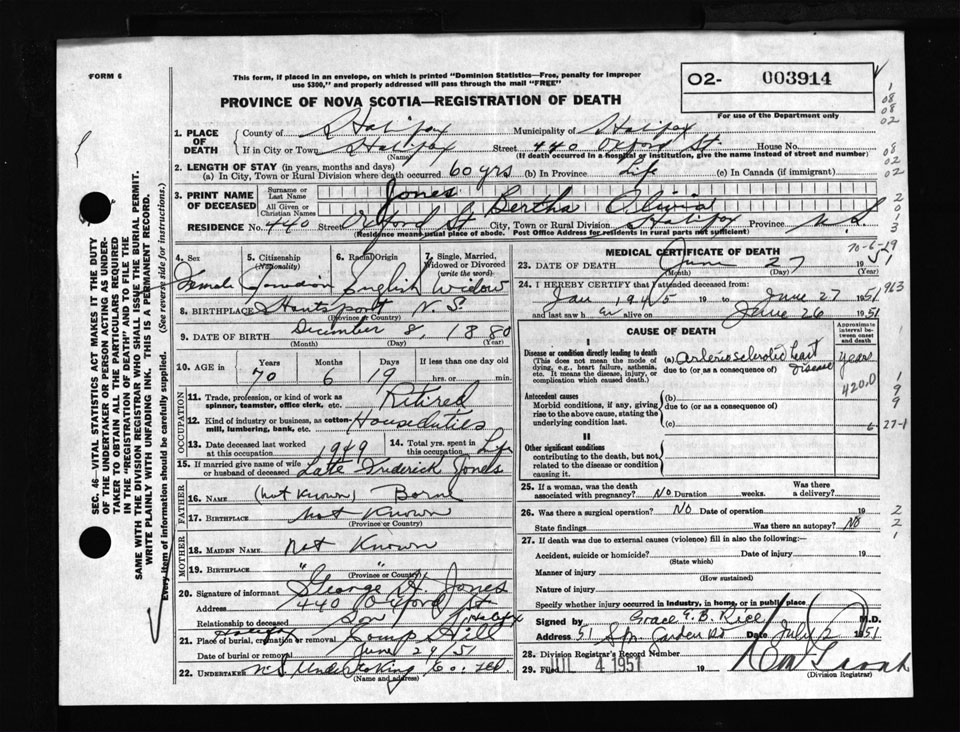 FORM 6
This form, if placed in an envelope, on which is printed "Dominion Statistics—Free, penalty for improper
use $300," and properly addressed will pass through the mail "FREE"
O2- 003914
For use of the Department only
PROVINCE OF NOVA SCOTIA—REGISTRATION OF DEATH
1. PLACE OF DEATH
County of Halifax Municipality of Halifax
If in City or Town Halifax Street 440 Oxford St. House No.
(Name) (If death occurred in a hospital or institution, give the name instead of street and number)
2. LENGTH OF STAY (in years, months and days)
(a) In City, Town or Rural Division where death occurred 60 yrs (b) In Province Life (c) In Canada (if immigrant)
3. PRINT NAME OF DECEASED
Surname or Last Name Jones
All Given or Christian Names Bertha Olivia
RESIDENCE No. 440 Street Oxford St City, Town or Rural Division Halifax Province N.S.
(Residence means usual place of abode. Post Office Address for residents in rural parts not sufficient)
4. Sex Female
5. Citizenship (Nationality) Canadian
6. Racial Origin English
7. Single, Married, Widowed or Divorced (write the word) Widow
8. BIRTHPLACE Hantsport N.S.
(Province or Country)
9. DATE OF BIRTH December 8, 1880
(Month) (Day) (Year)
10. AGE IN Years Months Days If less than one day old
70 6 19 hrs. or min.
OCCUPATION
11. Trade, profession, or kind of work as spinner, teamster, office clerk, etc. Retired
12. Kind of industry or business, as cotten-mill, lumbering, bank, etc. Houseduties
13. Date deceased last worked at this occupation 1949
14. Total yrs. spent in this occupation Life
15. If married give name of wife or husband of deceased Late Frederick Jones
FATHER
16. NAME (not known) Borne
17. BIRTHPLACE Not Known
(Province or Country)
MOTHER
18. MAIDEN NAME Not Known
19. BIRTHPLACE " "
(Province or Country)
20. Signature of informant George H. Jones
Address 440 Oxford St
Halifax
Relationship to deceased Son
21. Place of burial, cremation or removal Halifax Camp Hill
Date of burial or removal June 29/51
22. UNDERTAKER N.S. Undertaking Co. Ltd.
(Name and address)
MEDICAL CERTIFICATE OF DEATH
70-6-19
23. DATE OF DEATH June 27 1951
(Month) (Day) (Year)
24. I HEREBY CERTIFY that I attended deceased from:
Jan 1945 19 to June 27 1951
and last saw h er alive on June 26 1951
CAUSE OF DEATH
Approximate interval between onset and death
I
Disease or condition directly leading to death
(This does not mean the mode of dying, e.g., heart failure, asthenia, etc. It means the disease, injury, or complication which caused death.)
(a) arteriosclerotic heart disease years
due to (or as a consequence of)
420.0
Antecedent causes
Morbid conditions, if any, giving rise to the above cause, stating the underlying condition last.
(b)
due to (or as a consequence of)
(c)
II
Other significant conditions
contributing to the death, but not related to the disease or condition causing it.
25. If a woman, was the death associated with pregnancy? No Duration weeks. Was there a delivery?
26. Was there a surgical operation? No Date of operation 19
State findings Was there an autopsy? No
27. If death was due to external causes (violence) fill in also the following:—
Accident, suicide or homicide? Date of injury 19
(State which)
Manner of injury
(How sustained)
Nature of injury
Specify whether injury occurred in industry, in home, or in public place
Signed by Grace E.B. Rice M.D.
Address 51 Spr. Garden Rd Date July 2 1951
28. Division Registrar's Record Number
29. Filed JUL 4 1951 19
(Division Registrar)
SEC. 46—VITAL STATISTICS ACT MAKES IT THE DUTY
OF THE UNDERTAKER OR PERSON ACTING AS UNDER-
TAKER TO OBTAIN ALL THE PARTICULARS REQUIRED
IN THE "REGISTRATION OF DEATH" AND TO FILE THE
SAME WITH THE DIVISION REGISTRAR WHO SHALL ISSUE THE BURIAL PERMIT.
WRITE PLAINLY WITH UNFADING INK. THIS IS A PERMANENT RECORD.
Every item of information should be carefully supplied. (See reverse side for instructions.)